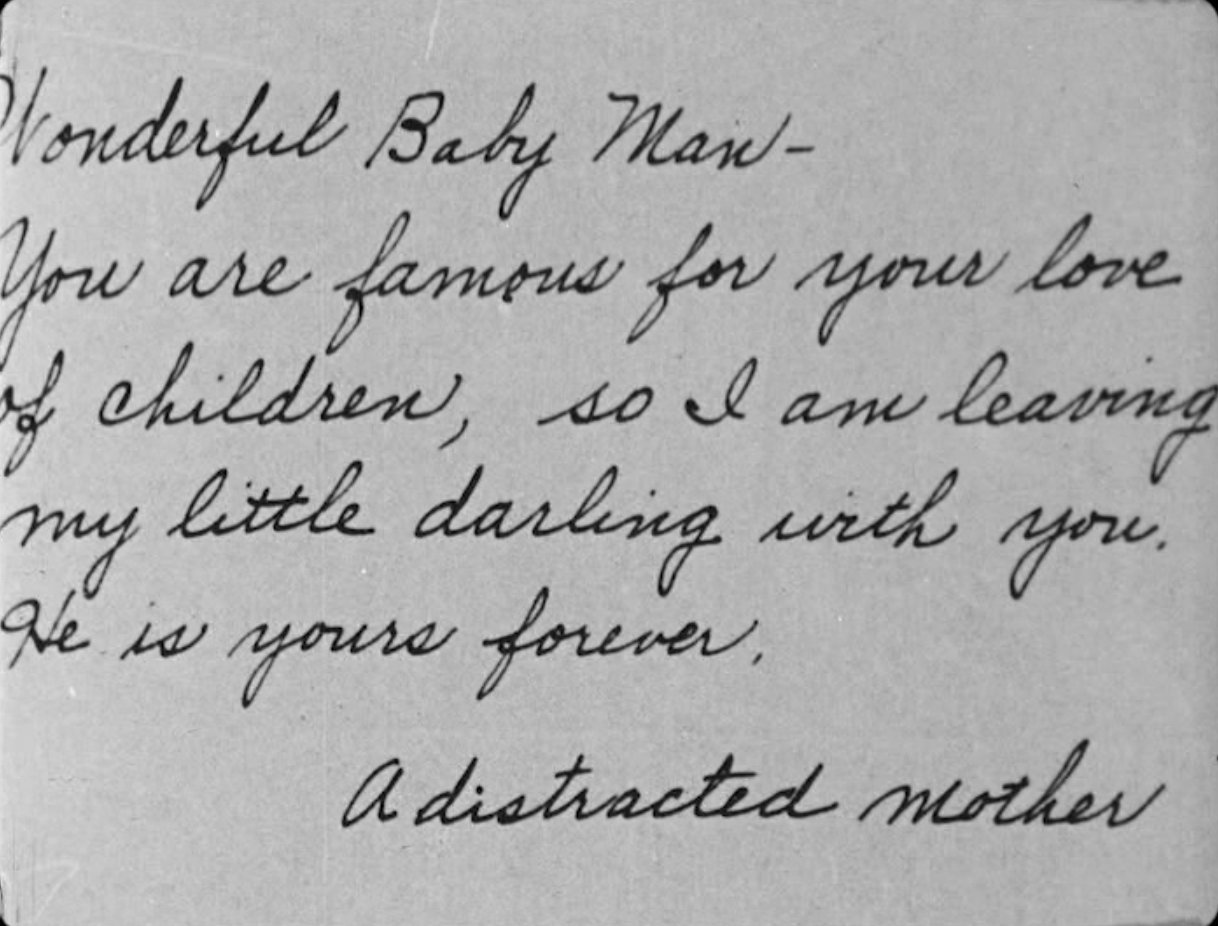 Wonderful Baby Man-
You are famous for your love
of children, so I am leaving
my little darling with you.
He is yours forever.
A distracted mother